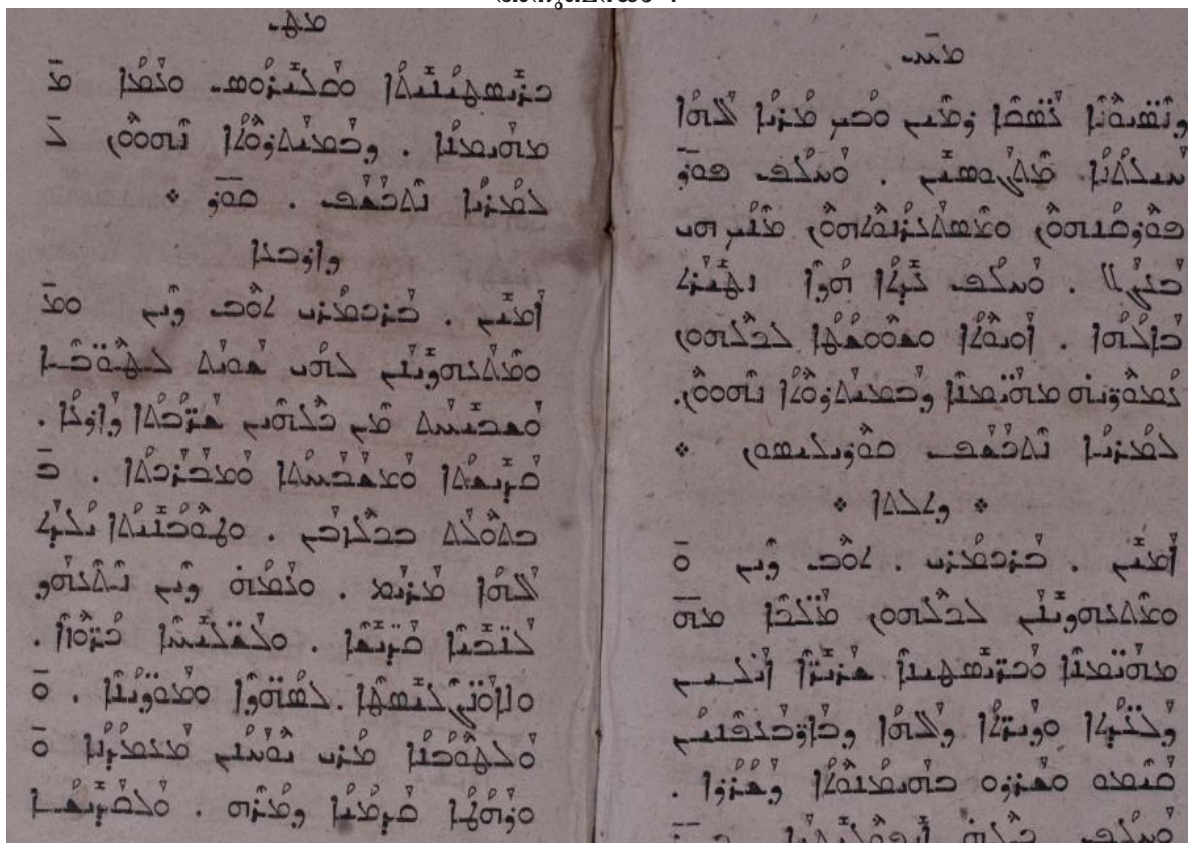 ܘܚܠܦ ܦܘܪ
ܦܘܪܩܢܗܘܢ ܘܡܣܬܥܪܢܘܬܗܘܢ
ܘܚܠܦ ܥܕܬܐ ܗܕܐ ܢܛܝܪܬ
ܒܐܠܗܐ . ܐܘܝܘܬܐ ܘܫܘܘܫܛܐ ܠܟܠܗܘܢ
ܥܡܘܪܝܗ ܡܗܝܡܢܐ ܕܒܡܝܬܪܘܬܐ ܢܗܘܘܢ.
ܠܡܪܝܐ ܢܬܟܫܦ ܩܘܪܝܠܝܣܘܢ
ܕܬܠܬܐ
ܐܡܝܢ . ܒܪܟܡܪܝ . ܬܘܒ ܕܝܢ ܘ
ܘܡܬܥܗܕܝܢܢ ܠܟܠܗܘܢ ܡܠܟܐ ܡܗ
ܡܗܝܡܢܐ ܘܟܪܣܛܝܢܐ ܫܪܝܪܐ ܐܝܠܝܢ
ܕܠܥܕܬܐ ܘܕܝܪܬܐ ܕܐܠܗܐ ܕܒܐܪܒܥܦܢܝܢ
ܩܝܡܘ ܘܫܪܪܘ ܒܗܝܡܢܘܬܐ ܕܫܪܪܐ .
ܡܛ
ܟܪܣܛܝܢܝܬܐ ܘܩܠܝܪܘܣ ܘܥܡܐ ܡ
ܡܗܝܡܢܐ . ܕܒܡܝܬܪܘܬܐ ܢܗܘܘܢ ܠ
ܠܡܪܝܐ ܢܬܟܫܦ . ܩܘܪ
ܕܐܪܒܥܐ
ܐܡܝܢ . ܒܪܟܡܪܝ ܬܘܒ ܕܝܢ ܘܡ
ܘܡܬܥܗܕܝܢܢ ܠܗܝ ܫܘܝܬ ܠܛܘܒܐ
ܘܡܫܒܚܬ ܡܢ ܟܠܗܝܢ ܫܪܒܬܐ ܕܐܪܥܐ .
ܩܕܝܫܬܐ ܘܡܫܒܚܬܐ ܘܡܒܪܟܬܐ . ܒ
ܒܬܘܠܬ ܒܟܠܙܒܢ . ܘܛܘܒܢܝܬܐ ܝܠܕܬ
ܐܠܗܐ ܡܪܝܡ . ܘܥܡܗ ܕܝܢ ܢܬܥܗܕ
ܠܢܒܝܐ ܩܕܝܫܐ . ܘܠܫܠܝܚܐ ܟܪܘܙܐ .
ܘܐܘܢܓܠܝܣܛܐ . ܠܣܗܕܐ ܘܡܘܕܝܢܐ . ܘ
ܘܠܛܘܒܢܐ ܡܪܝ ܝܘܚܢܢ ܡܥܡܕܢܐ ܘ
ܘܪܗܛܐ ܩܕܡܝܐ ܕܡܪܗ . ܘܠܩܕܝܫܐ